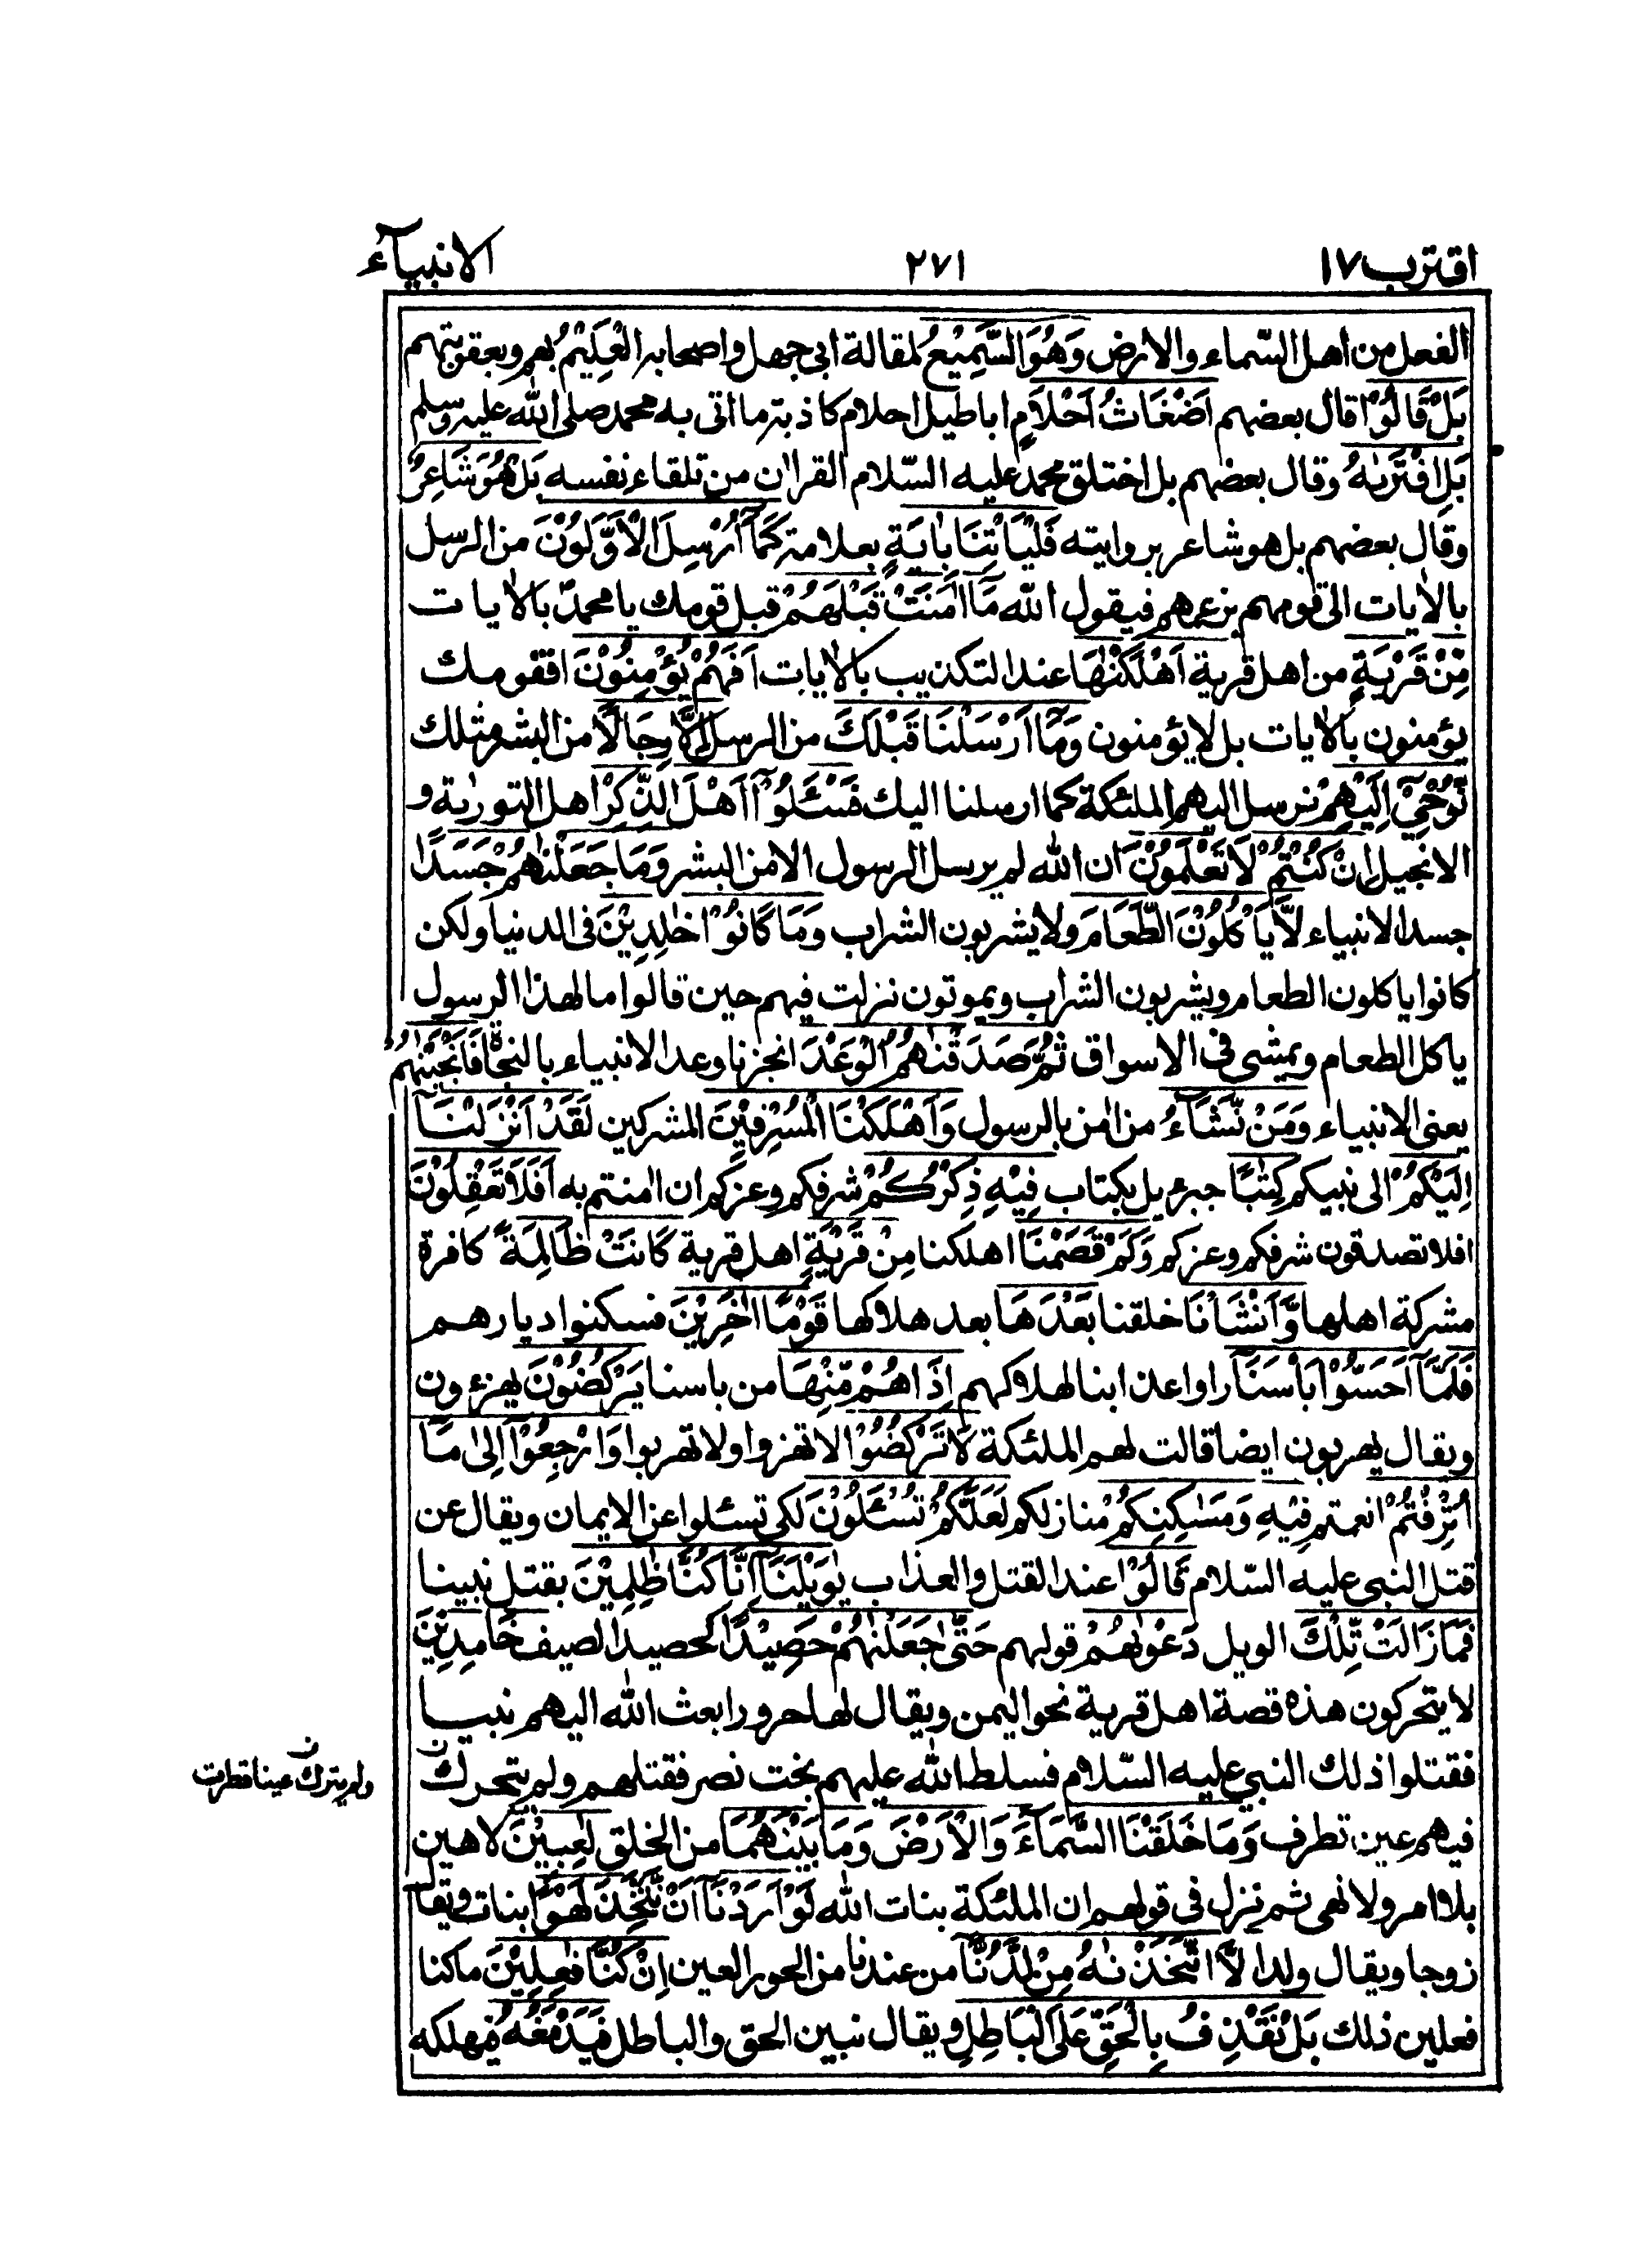 اقترب ١٧
٢٧١
الانبيآء
الفعل من اهل السّماء والارض وَهُوَ السَّمِيْعُ لمقالة ابى جهل واصحابه الْعَلِيْمُ بهم وبعقوبتهم
بَلْ قَالُوْٓا قال بعضهم اَضْغَاثُ اَحْلَامٍ اباطيل احلام كاذبة ما اتى به محمد صلى الله عليه وسلم
بَلِ افْتَرٰىهُ وقال بعضهم بل اختلق محمد عليه السّلام القرأن من تلقاء نفسه بَلْ هُوَ شَاعِرٌ
وقال بعضهم بل هو شاعر بروايته فَلْيَاْتِنَا بِاٰيَةٍ بعلامة كَمَآ اُرْسِلَ الْاَوَّلُوْنَ من الرسل
بالاٰيات الى قومهم بزعمهم فيقول الله مَآ اٰمَنَتْ قَبْلَهُمْ قبل قومك يا محمدٌ بالاٰيات
مِّنْ قَرْيَةٍ من اهل قرية اَهْلَكْنٰهَا عند التكذيب بالاٰيات اَفَهُمْ يُؤْمِنُوْنَ افقومك
يؤمنون بالاٰيات بل لا يؤمنون وَمَآ اَرْسَلْنَا قَبْلَكَ من الرسل اِلَّا رِجَالًا من البشر مثلك
نُّوْحِيْٓ اِلَيْهِمْ نرسل اليهم الملئكة كما ارسلنا اليك فَسْـَٔلُوْٓا اَهْلَ الذِّكْرِ اهل التورٰىة و
الانجيل اِنْ كُنْتُمْ لَا تَعْلَمُوْنَ ان الله لم يرسل الرسول الا من البشر وَمَا جَعَلْنٰهُمْ جَسَدًا
جسد الانبياء لَّا يَاْكُلُوْنَ الطَّعَامَ ولا يشربون الشراب وَمَا كَانُوْا خٰلِدِيْنَ فى الدنيا ولكن
كانوا ياكلون الطعام ويشربون الشراب ويموتون نزلت فيهم حين قالوا مال هذا الرسول
ياكل الطعام ويمشى فى الاسواق ثُمَّ صَدَقْنٰهُمُ الْوَعْدَ انجزنا وعد الانبياء بالنجاة فَاَنْجَيْنٰهُمْ
يعنى الانبياء وَمَنْ نَّشَآءُ من اٰمن بالرسول وَاَهْلَكْنَا الْمُسْرِفِيْنَ المشركين لَقَدْ اَنْزَلْنَآ
اِلَيْكُمْ الى نبيكم كِتٰبًا جبرءيل بكتاب فِيْهِ ذِكْرُكُمْ شرفكم وعزكم ان اٰمنتم به اَفَلَا تَعْقِلُوْنَ
افلا تصدقون شرفكم وعزكم وَكَمْ قَصَمْنَا اهلكنا مِنْ قَرْيَةٍ اهل قرية كَانَتْ ظَالِمَةً كافرة
مشركة اهلها وَّاَنْشَاْنَا خلقنا بَعْدَهَا بعد هلاكها قَوْمًا اٰخَرِيْنَ فسكنوا ديارهم
فَلَمَّآ اَحَسُّوْا بَاْسَنَآ راوا عذابنا لهلاكهم اِذَا هُمْ مِّنْهَا من باسنا يَرْكُضُوْنَ يهزءون
ويقال يهربون ايضا قالت لهم الملئكة لَا تَرْكُضُوْا لا تهزوا ولا تهربوا وَارْجِعُوْٓا اِلٰى مَآ
اُتْرِفْتُمْ انعمتم فِيْهِ وَمَسٰكِنِكُمْ منازلكم لَعَلَّكُمْ تُسْـَٔلُوْنَ لكى تسئلوا عن الايمان ويقال عن
قتل النبى عليه السّلام قَالُوْا عند القتل والعذاب يٰوَيْلَنَآ اِنَّا كُنَّا ظٰلِمِيْنَ بقتل نبينا
فَمَا زَالَتْ تِّلْكَ الويل دَعْوٰىهُمْ قولهم حَتّٰى جَعَلْنٰهُمْ حَصِيْدًا كحصيد الصيف خَامِدِيْنَ
لا يتحركون هذه قصة اهل قرية نحو اليمن ويقال لها حرورا بعث الله اليهم نبيا
فقتلوا ذلك النبي عليه السّلام فسلط الله عليهم بخت نصر فقتلهم ولم يتحرك ن
ن ولم يترك عينا قطرت
فيهم عين تطرف وَمَا خَلَقْنَا السَّمَآءَ وَالْاَرْضَ وَمَا بَيْنَهُمَا من الخلق لٰعِبِيْنَ لاهين
بلا امر ولا نهى ثم نزل فى قولهم ان الملئكة بنات الله لَوْ اَرَدْنَآ اَنْ نَّتَّخِذَ لَهْوًا بنات ويقال
زوجا ويقال ولدا لَّاتَّخَذْنٰهُ مِنْ لَّدُنَّآ من عندنا من الحور العين اِنْ كُنَّا فٰعِلِيْنَ ما كنا
فعلين ذلك بَلْ نَقْذِفُ بِالْحَقِّ عَلَى الْبَاطِلِ ويقال نبين الحق والباطل فَيَدْمَغُهٗ فيهلكه